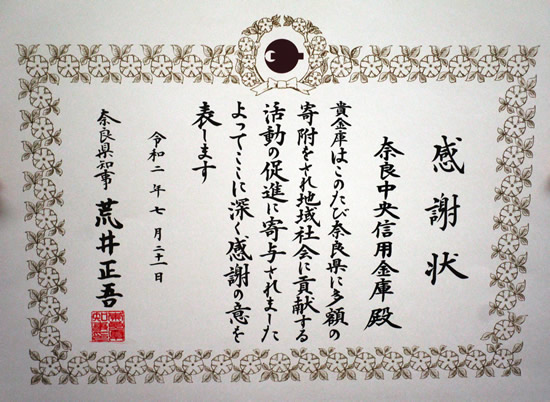 感謝状
奈良中央信用金庫 殿
貴金庫はこのたび奈良県に多額の
寄附をされ地域社会に貢献する
活動の促進に寄与されました
よってここに深く感謝の意を
表します
令和二年七月二十一日
奈良県知事 荒井正吾